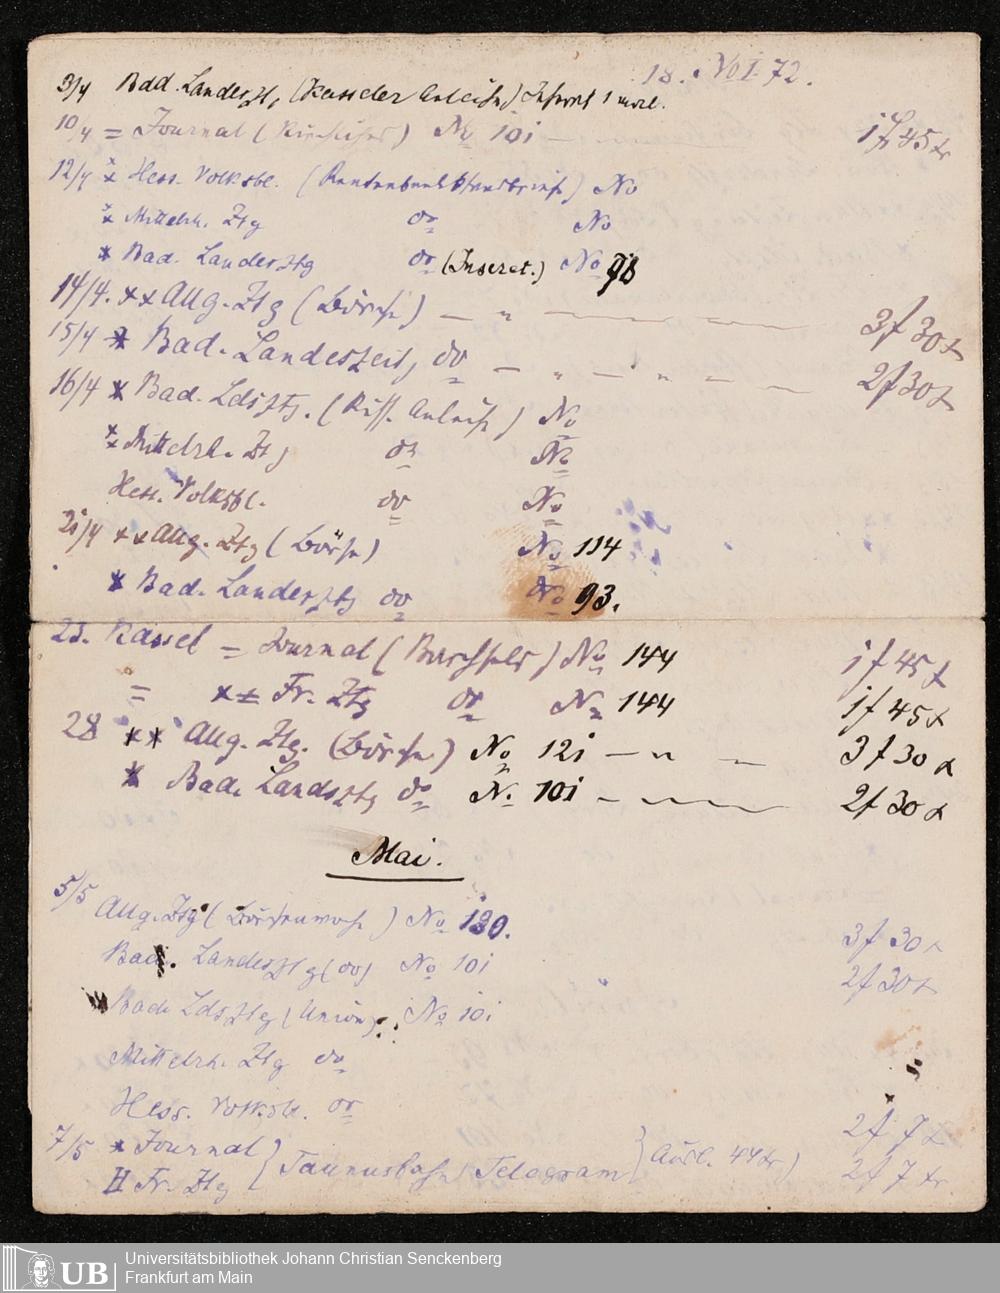 18. No I 72.
3/4 Bad. Landesztg (Kasseler Anleihe) Inserat 1 mal.
10/4 = Journal ( ) No 101 — 1 f 45 x
12/4 x Hess. Volksbl. (Rentenbank Pfandbriefe) No
x Mittelrh. Ztg do No
x Bad. Landesztg do (Inserat.) No 98
14/4. x x Allg. Ztg (Börse) — " — 3 f 30 x
15/4 x Bad. Landeszeit, do — " — " — 2 f 30 x
16/4 x Bad. Ldsztg. ( Anleihe) No
x Mittelrh. Ztg do No
Hess. Volksbl. do No
21/4 x x Allg. Ztg (Börse) No 114
x Bad. Landesztg do No 93.
23. Kassel = Journal ( ) No 144 1 f 45 x
= x x Fr. Ztg do No 144 1 f 45 x
28 x x Allg. Ztg. (Börse) No 121 — " — 3 f 30 x
x Bad. Landsztg do No 101 — 2 f 30 x
Mai.
5/5 Allg. Ztg (Börsenwoche) No 130. 3 f 30 x
Bad. Landesztg (do) No 101 2 f 30 x
Bad. Ldsztg (Union) No 101
Mittelrh. Ztg do
Hess. Volksbl. do
7/5 x Journal 2 f 7 x
II Fr. Ztg } Taunusbahn Telegram } Ausl. 44 x) 2 f 7 xr.
UB
Universitätsbibliothek Johann Christian Senckenberg
Frankfurt am Main